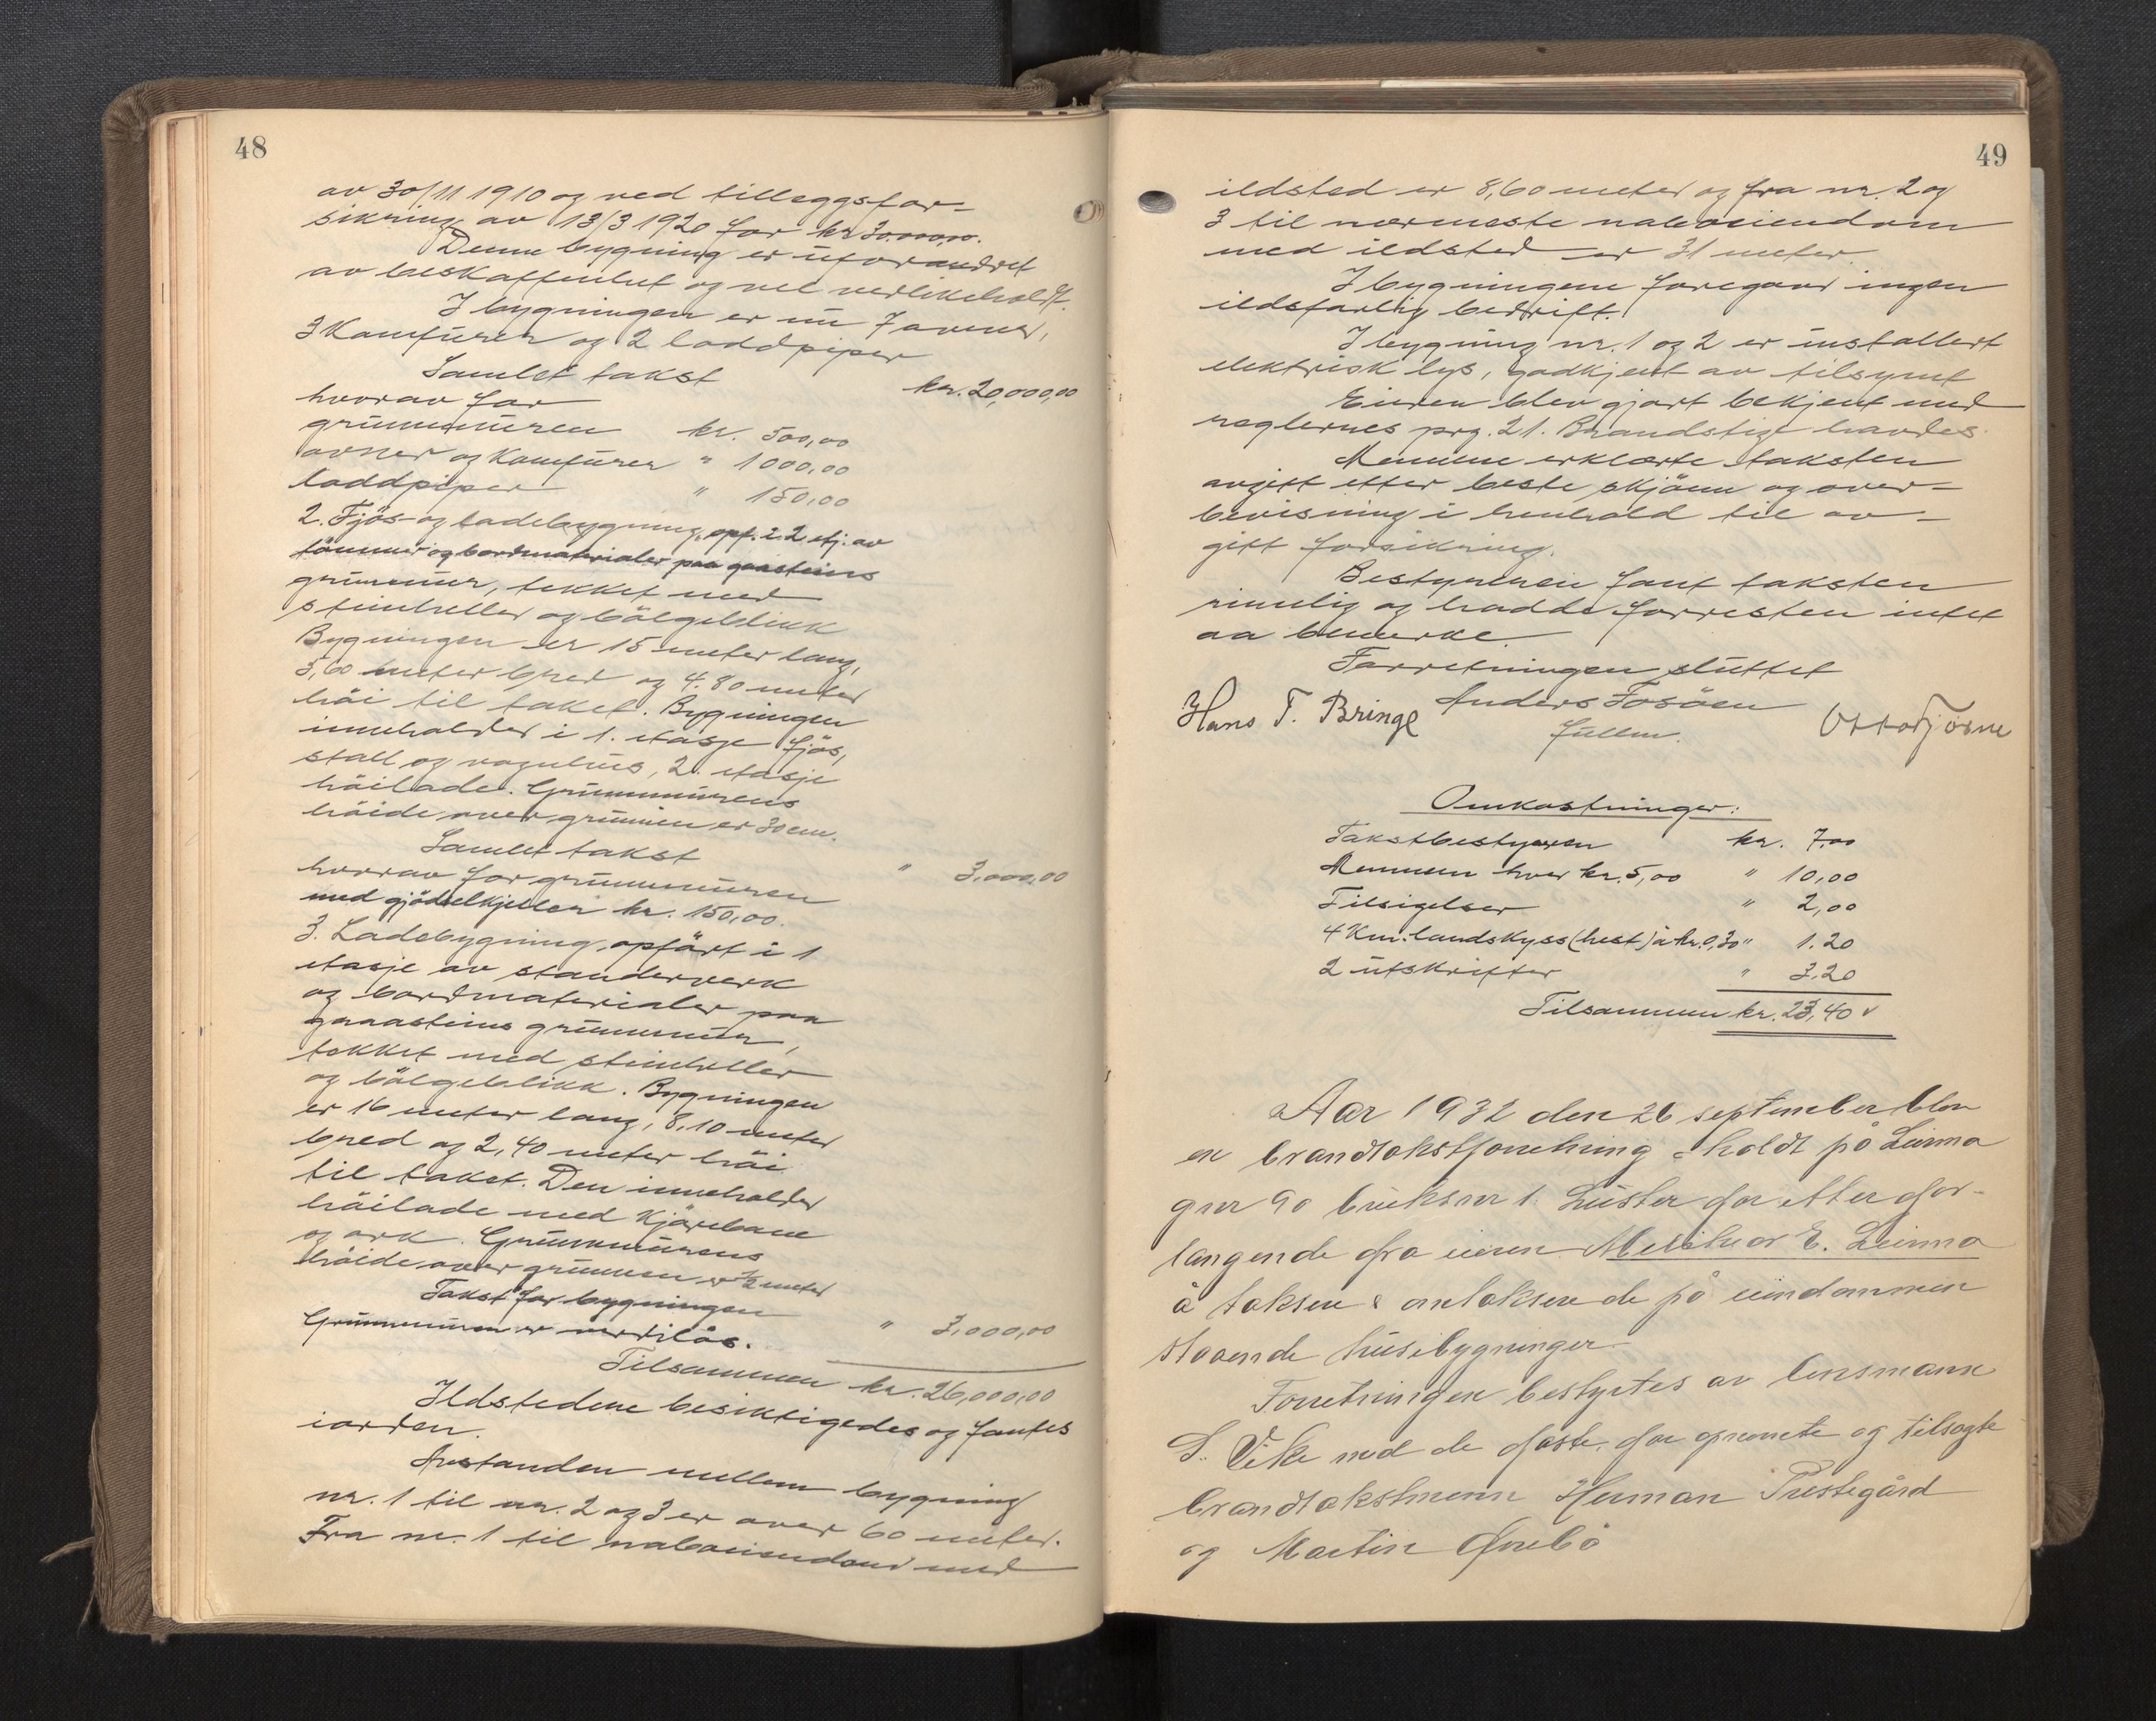 48
av 30/11 1910 og ved tilleggsfor-
sikring av 13/3 1920 for kr 30.000,00.
Denne bygning er uforandret
av beskaffenhet og vel vedlikeholdt.
I bygningen er nu 7 ovner,
3 Komfürer og 2 loddpiper
Samlet takst kr. 20,000,00
hvorav for
grunnmüren kr. 500,00
ovner og Komfürer " 1000,00
loddpiper " 150,00
2. Fjös- og ladebygning, opf. i 2 etj. av
tömmer og bordmaterialer paa graasteins
grunmur, tekket med
steinheller og bölgeblikk
Bygningen er 15 meter lang,
5,60 meter bred og 4.80 meter
höi til taket. Bygningen
inneholder i 1. etasje fjös,
stall og vognhus, 2. etasje
höilade. Grunnmürens
höide over grunnen er 30 cm.
Samlet takst " 3,000,00
hvorav for grunnmuren
med gjödselkjeller kr. 150,00.
3. Ladebygning, opfört i 1
etasje av standerverk
og bordmaterialer paa
graasteins grunnmur,
tekket med steinheller
og bölgeblikk. Bygningen
er 16 meter lang, 8,10 meter
bred og 2,40 meter höi
til taket. Den inneholder
höilade med Kjörebane
og ark. Grunnmurens
höide over grunnen er 1/2 meter
Takst for bygningen " 3,000,00
Grunnmuren er verdilös.
Tilsammen kr. 26,000,00
Ildstedene besiktigedes og fantes
iorden.
Avstanden mellem bygning
nr. 1 til nr. 2 og 3 er over 60 meter.
Fra nr. 1 til naboeiendom med
49
ildsted er 8,60 meter og fra nr. 2 og
3 til nærmeste naboeiendom
med ildsted er 31 meter.
I bygningene foregaar ingen
ildsfarlig bedrift.
I bygning nr. 1 og 2 er installert
elektrisk lys, godkjent av tilsynet
Eieren blev gjort bekjent med
reglernes prg. 21. Brandstige havdes.
Mennene erklærte taksten
avgitt efter beste skjönn og over-
bevisning i henhold til av-
gitt forsikring.
Bestyreren fant taksten
rimelig og hadde forresten intet
aa bemerke.
Forretningen sluttet
Hans T. Bringe Anders Fosöen Otto Fjösne
fullm.
Omkostninger:
Takstbestyreren kr. 7,00
Mennene hver kr. 5,00 " 10,00
Tilsigelser " 2,00
4 Km. landskyss (hest) à kr. 0,30 " 1.20
2 utskrifter " 3,20
Tilsammen kr. 23,40 v
Aar 1932 den 26 september blev
en brandtakstforretning holdt på Leirmo
gnr 90 bruksnr 1. Luster for etter for-
langende fra eieren Melchior E. Leirmo
å taksere & omtaksere de på eiendommen
staaende husebygninger.
Forretningen bestyrtes av lensmann
S. Eike med de faste, for opnevnte og tilsagte
brandtakstmenn Herman Prestegård
og Martin